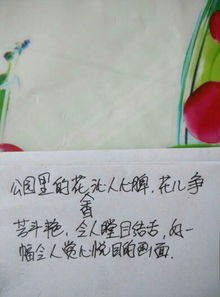 公园里的花香沁人心脾,花儿争
芳斗艳,令人瞠目结舌,如一
幅令人赏心悦目的画面.